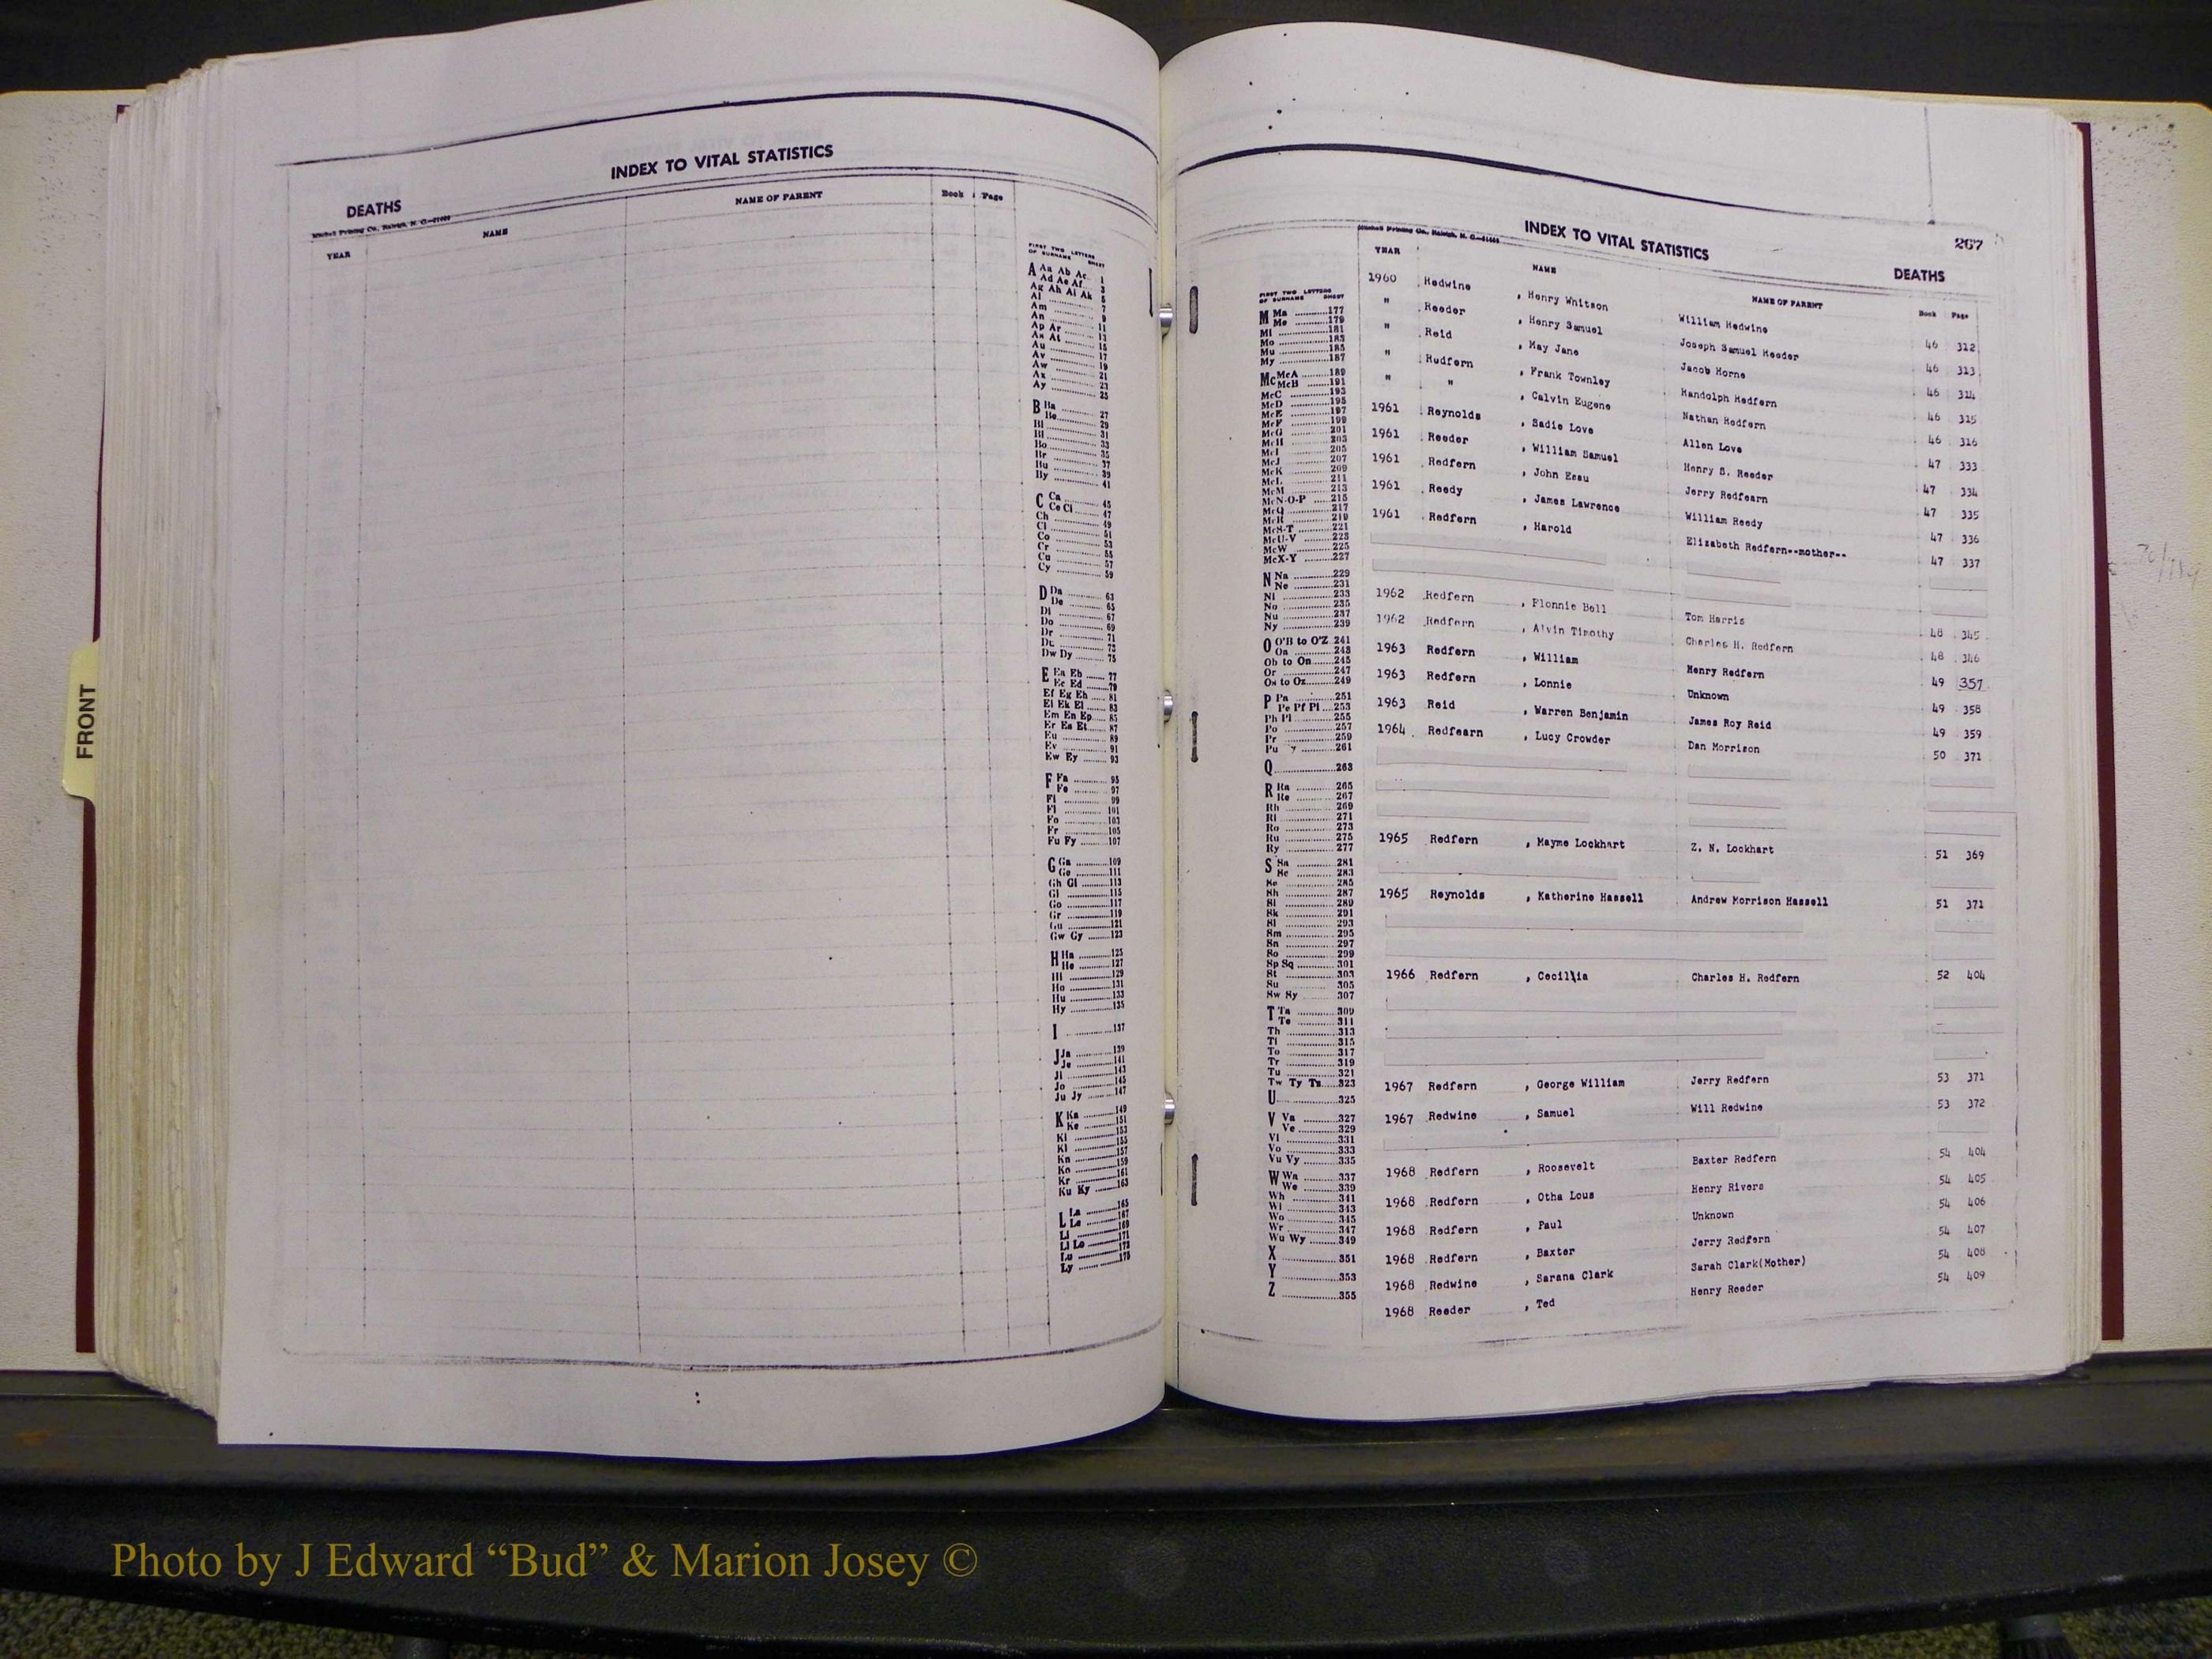 INDEX TO VITAL STATISTICS
DEATHS
Mitchell Printing Co., Raleigh, N. C.
YEAR NAME NAME OF PARENT Book Page
FIRST TWO LETTERS OF SURNAME SHEET
A Aa Ab Ac 1
Ad Ae Af 3
Ag Ah Ai Ak 5
Al 7
Am 9
An 11
Ap Ar 13
As At 15
Au 17
Av 19
Aw 21
Ax 23
Ay 25
B Ba 27
Be 29
Bi 31
Bl 33
Bo 35
Br 37
Bu 39
By 41
C Ca 45
Ce Ci 47
Ch 49
Cl 51
Co 53
Cr 55
Cu 57
Cy 59
D Da 63
De 65
Di 67
Do 69
Dr 71
Du 73
Dw Dy 75
E Ea Eb 77
Ec Ed 79
Ef Eg Eh 81
Ei Ek El 83
Em En Ep 85
Er Es Et 87
Eu 89
Ev 91
Ew Ey 93
F Fa 95
Fe 97
Fi 99
Fl 101
Fo 103
Fr 105
Fu Fy 107
G Ga 109
Ge 111
Gh Gi 113
Gl 115
Go 117
Gr 119
Gu 121
Gw Gy 123
H Ha 125
He 127
Hi 129
Ho 131
Hu 133
Hy 135
I 137
J Ja 139
Je 141
Ji 143
Jo 145
Ju Jy 147
K Ka 149
Ke 151
Ki 153
Kl 155
Kn 157
Ko 159
Kr 161
Ku Ky 163
L La 165
Le 167
Li 169
Ll Lo 171
Lu 173
Ly 175
FRONT
267
INDEX TO VITAL STATISTICS
DEATHS
Mitchell Printing Co., Raleigh, N. C.
YEAR NAME NAME OF PARENT Book Page
FIRST TWO LETTERS OF SURNAME SHEET
M Ma 177
Me 179
Mi 181
Mo 183
Mu 185
My 187
Mc McA 189
McB 191
McC 193
McD 195
McE 197
McF 199
McG 201
McH 203
McI 205
McJ 207
McK 209
McL 211
McM 213
McN-O-P 215
McQ 217
McR 219
McS-T 221
McU-V 223
McW 225
McX-Y 227
N Na 229
Ne 231
Ni 233
No 235
Nu 237
Ny 239
O O'B to O'Z 241
Oa 243
Ob to On 245
Or 247
Os to Oz 249
P Pa 251
Pe Pf Pi 253
Ph Pl 255
Po 257
Pr 259
Pu y 261
Q 263
R Ra 265
Re 267
Rh 269
Ri 271
Ro 273
Ru 275
Ry 277
S Sa 281
Sc 283
Se 285
Sh 287
Si 289
Sk 291
Sl 293
Sm 295
Sn 297
So 299
Sp Sq 301
St 303
Su 305
Sw Sy 307
T Ta 309
Te 311
Th 313
Ti 315
To 317
Tr 319
Tu 321
Tw Ty Tz 323
U 325
V Va 327
Ve 329
Vi 331
Vo 333
Vu Vy 335
W Wa 337
We 339
Wh 341
Wi 343
Wo 345
Wr 347
Wu Wy 349
X 351
Y 353
Z 355
1960 Redwine , Henry Whitson William Redwine 46 312
" Reeder , Henry Samuel Joseph Samuel Reeder 46 313
" Reid , May Jane Jacob Horne 46 314
" Rudfern , Frank Townley Randolph Redfern 46 315
" " , Calvin Eugene Nathan Redfern 46 316
1961 Reynolds , Sadie Love Allen Love 47 333
1961 Reeder , William Samuel Henry S. Reeder 47 334
1961 Redfern , John Esau Jerry Redfearn 47 335
1961 Reedy , James Lawrence William Reedy 47 336
1961 Redfern , Harold Elizabeth Redfern--mother-- 47 337
1962 Redfern , Flonnie Bell Tom Harris 48 345
1962 Redfern , Alvin Timothy Charles H. Redfern 48 346
1963 Redfern , William Henry Redfern 49 357
1963 Redfern , Lonnie Unknown 49 358
1963 Reid , Warren Benjamin James Roy Reid 49 359
1964 Redfearn , Lucy Crowder Dan Morrison 50 371
1965 Redfern , Mayme Lockhart Z. N. Lockhart 51 369
1965 Reynolds , Katherine Hassell Andrew Morrison Hassell 51 371
1966 Redfern , Cecillia Charles H. Redfern 52 404
1967 Redfern , George William Jerry Redfern 53 371
1967 Redwine , Samuel Will Redwine 53 372
1968 Redfern , Roosevelt Baxter Redfern 54 404
1968 Redfern , Otha Lous Henry Rivers 54 405
1968 Redfern , Paul Unknown 54 406
1968 Redfern , Baxter Jerry Redfern 54 407
1968 Redwine , Sarana Clark Sarah Clark(Mother) 54 408
1968 Reeder , Ted Henry Reeder 54 409
Photo by J Edward “Bud” & Marion Josey ©